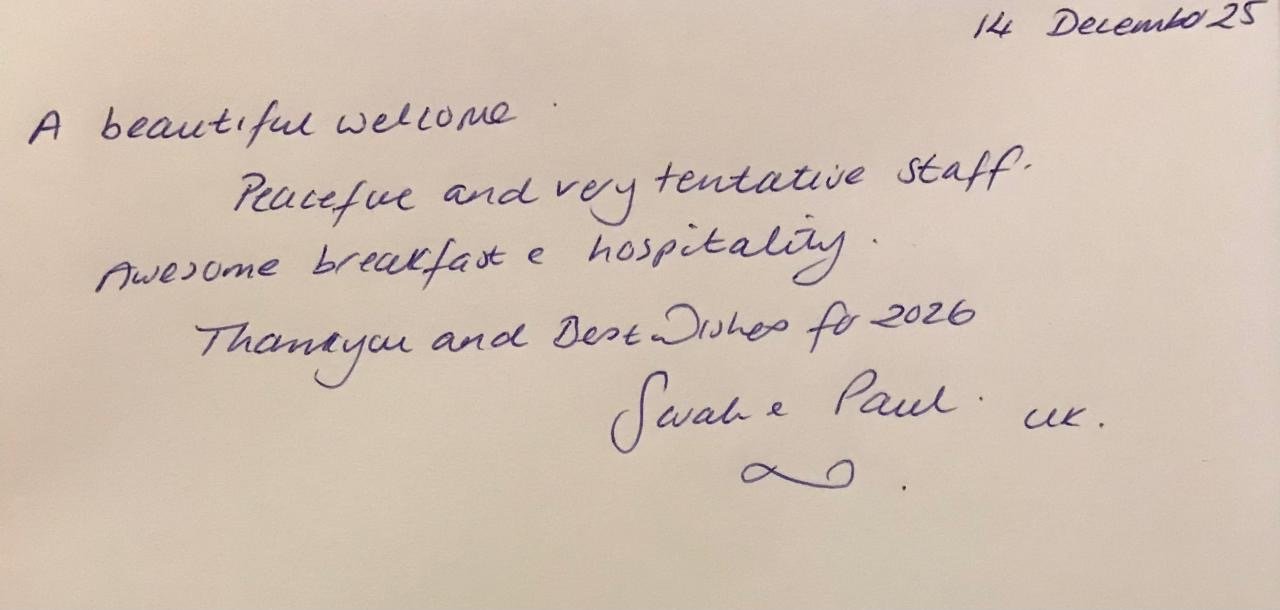 14 December 25
A beautiful welcome.
Peaceful and very tentative staff.
Awesome breakfast e hospitality.
Thankyou and Best Wishes for 2026
Sarah e Paul. UK.